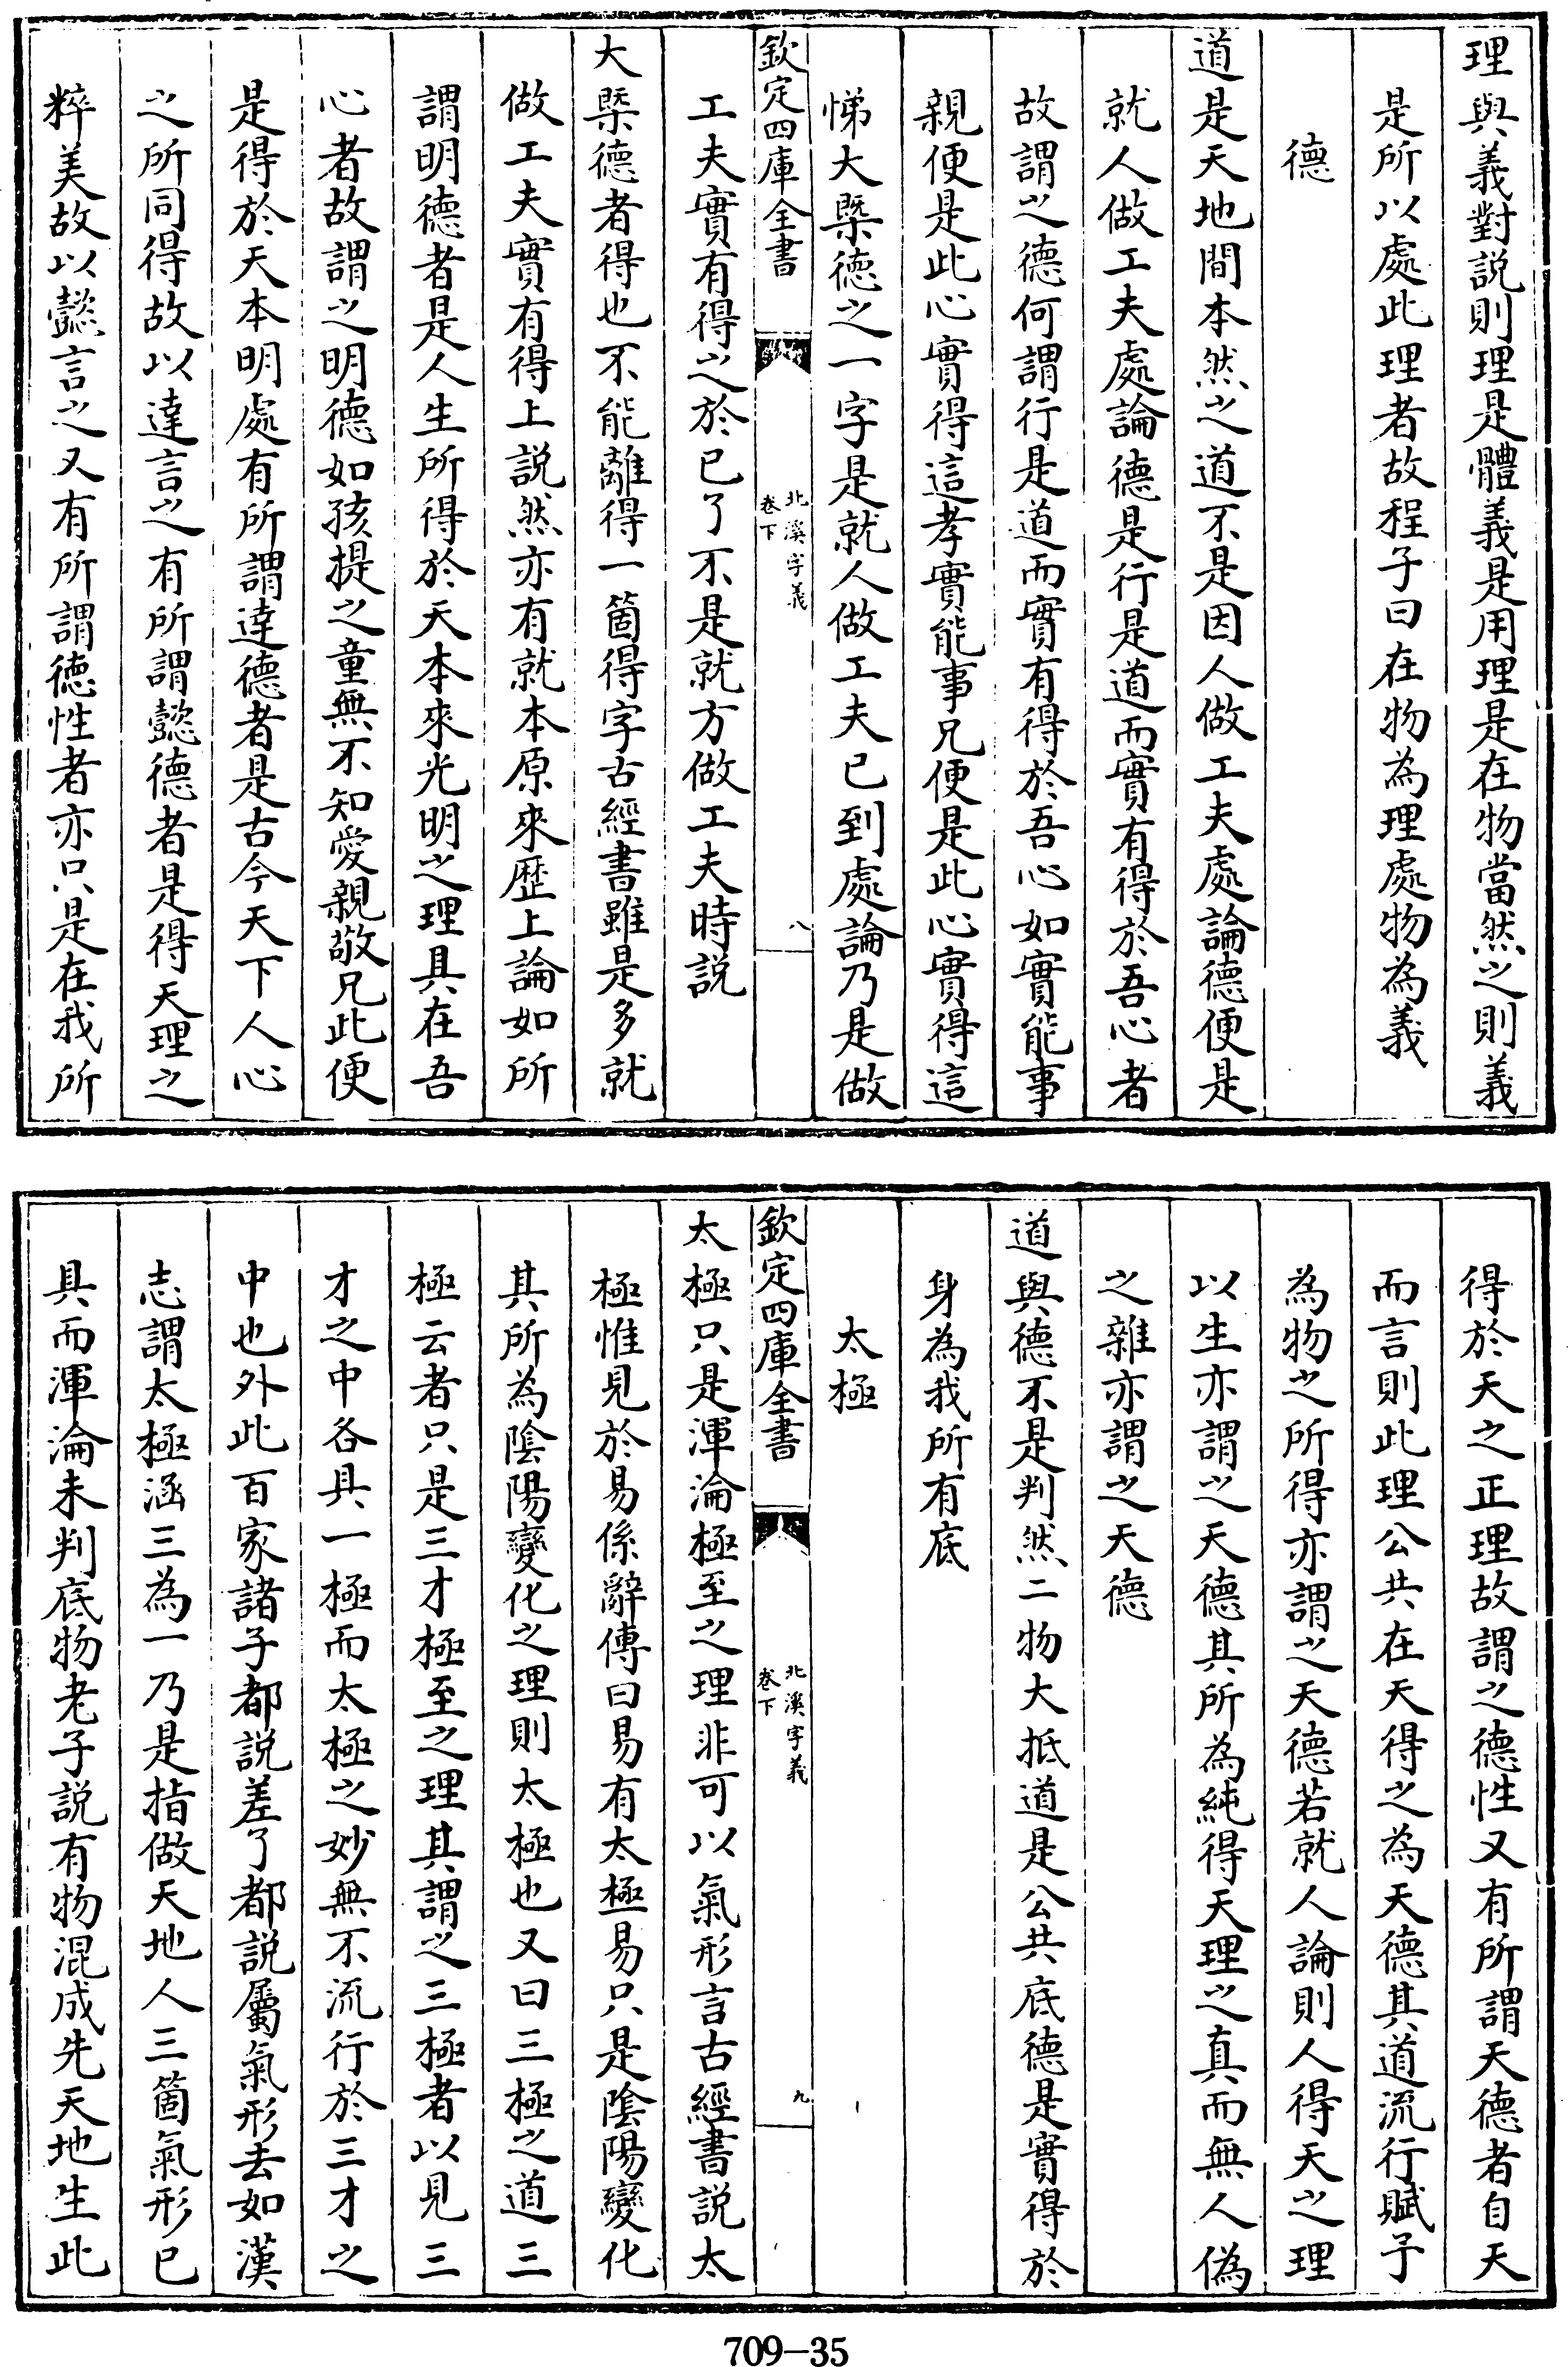 理與義對説則理是體義是用理是在物當然之則義
是所以處此理者故程子曰在物為理處物為義
德
道是天地間本然之道不是因人做工夫處論德便是
就人做工夫處論德是行是道而實有得於吾心者
故謂之德何謂行是道而實有得於吾心如實能事
親便是此心實得這孝實能事兄便是此心實得這
悌大槩徳之一字是就人做工夫已到處論乃是做
欽定四庫全書
北溪字義
卷下
八
工夫實有得之於已了不是就方做工夫時説
大槩德者得也不能離得一箇得字古經書雖是多就
做工夫實有得上説然亦有就本原來歴上論如所
謂明德者是人生所得於天本來光明之理具在吾
心者故謂之明德如孩提之童無不知愛親敬兄此便
是得於天本明處有所謂達德者是古今天下人心
之所同得故以達言之有所謂懿德者是得天理之
粹美故以懿言之又有所謂德性者亦只是在我所
得於天之正理故謂之德性又有所謂天德者自天
而言則此理公共在天得之為天德其道流行賦予
為物之所得亦謂之天德若就人論則人得天之理
以生亦謂之天德其所為純得天理之真而無人偽
之雜亦謂之天德
道與德不是判然二物大抵道是公共底德是實得於
身為我所有底
太極
欽定四庫全書
北溪字義
卷下
九
太極只是渾淪極至之理非可以氣形言古經書説太
極惟見於易係辭傳曰易有太極易只是隂陽變化
其所為隂陽變化之理則太極也又曰三極之道三
極云者只是三才極至之理其謂之三極者以見三
才之中各具一極而太極之妙無不流行於三才之
中也外此百家諸子都説差了都説屬氣形去如漢
志謂太極涵三為一乃是指做天地人三箇氣形已
具而渾淪未判底物老子説有物混成先天地生此
709-35